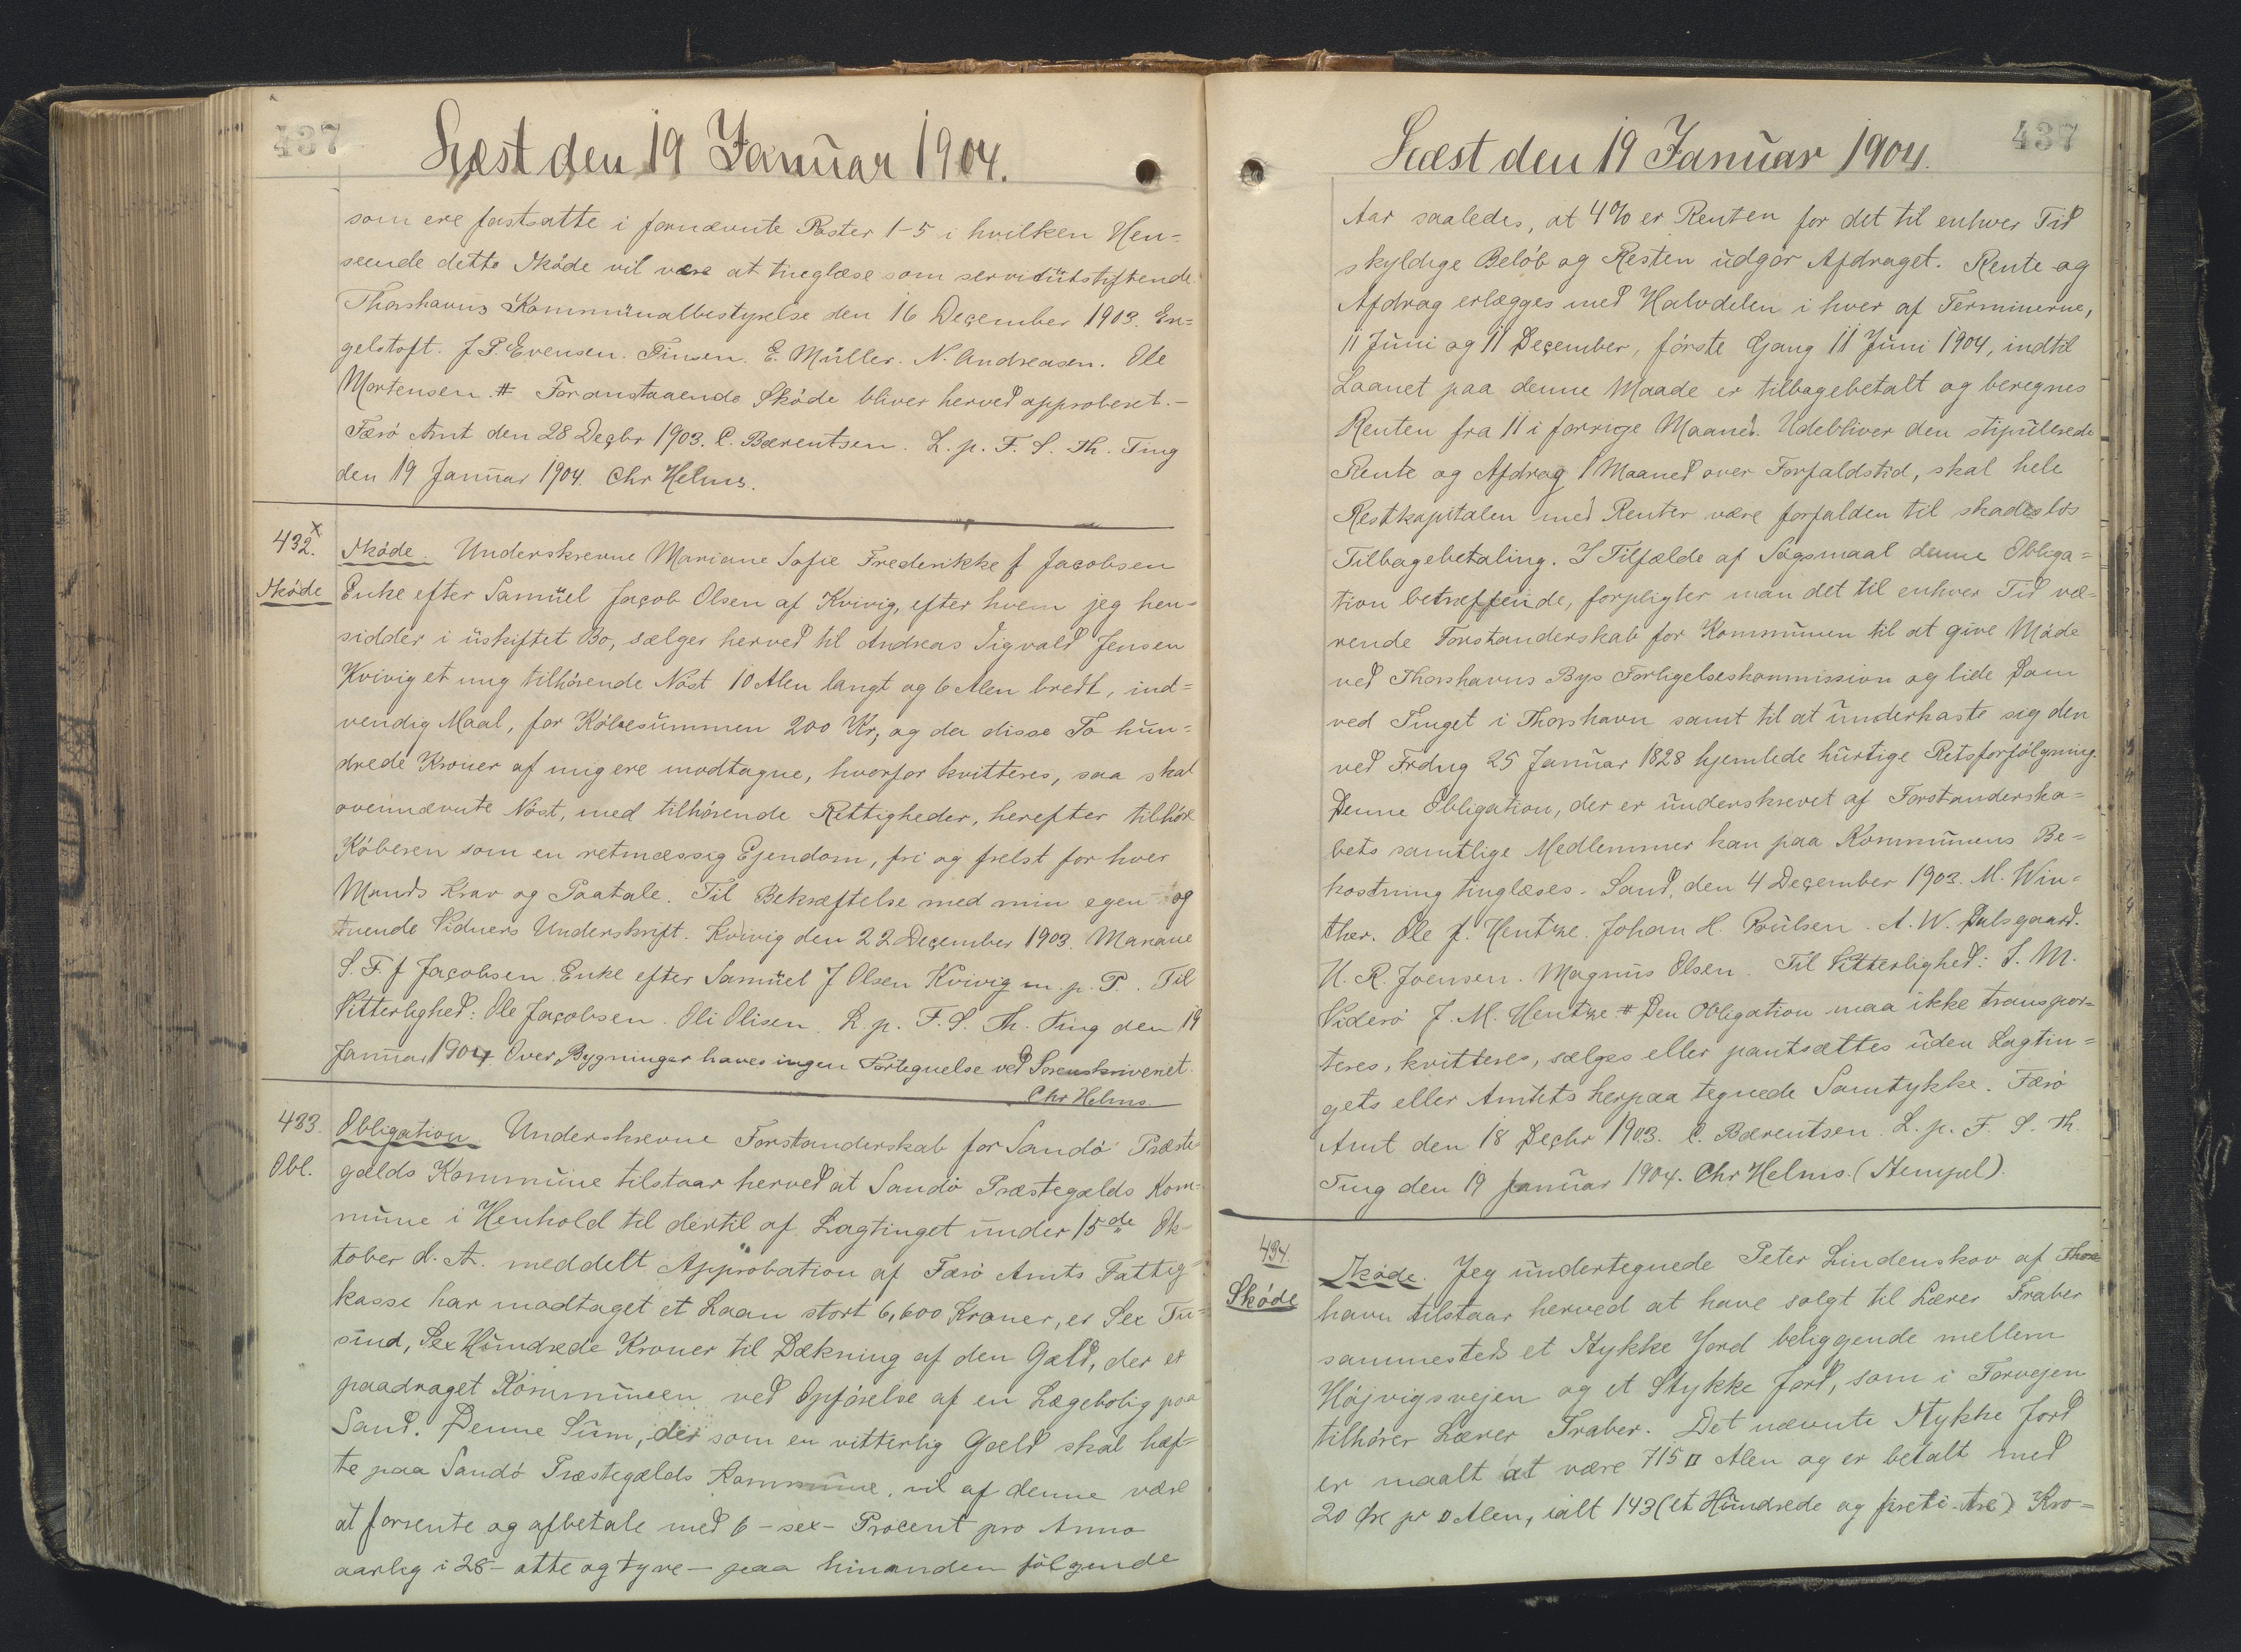 437
Læst den 19 Januar 1904.
som ere fastsatte i fornævnte Poster 1-5 i hvilken Hen=
seende dette Skøde vil være at tinglæse som servitutstiftende.
Thorshavns Kommunalbestyrelse den 16 December 1903. En=
gelstoft. J. P. Evensen. Finsen. E. Müller. N. Andreasen. Ole
Mortensen. # Foranstaaende Skøde bliver herved approberet.-
Færø Amt den 28 Decbr 1903. C. Bærentsen. L. p. F. S. Th. Ting
den 19 Januar 1904. Chr Helms.
432. x
Skøde
Skøde. Underskrevne Mariane Sofie Frederikke f Jacobsen
Enke efter Samuel Jacob Olsen af Kvivig, efter hvem jeg hen-
sidder i uskiftet Bo, sælger herved til Andreas Sigvald Jensen
Kvivig et mig tilhørende Nøst 10 Alen langt og 6 Alen bredt, ind=
vendig Maal, for Købesummen 200 Kr, og da disse To hun=
drede Kroner af mig ere modtagne, hvorfor kvitteres, saa skal
ovennævnte Nøst, med tilhørende Rettigheder, herefter tilhøre
Køberen som en retmæssig Ejendom, fri og frelst for hver
Mands Krav og Paatale. Til Bekræftelse med min egen og
tvende Vidners Underskrift. Kvivig den 22 December 1903. Mariane
S. F. f Jacobsen Enke efter Samuel J Olsen Kvivig m. p. P. Til
Vitterlighed: Ole Jacobsen. Oli Olisen. L. p. F. S. Th. Ting den 19
Januar 1904. Over Bygninger haves ingen Fortegnelse ved Sorenskriveriet.
Chr Helms.
433.
Obl.
Obligation Underskrevne Forstanderskab for Sandø Præste=
gælds Kommune tilstaar herved at Sandø Præstegælds Kom=
mune i Henhold til dertil af Lagtinget under 15de Ok-
tober d. A. meddelt Approbation af Færø Amts Fattig=
kasse har modtaget et Laan stort 6,600 Kroner, er Sex Tu=
sind, Sex Hundrede Kroner til Dækning af den Gæld, der er
paadraget Kommunen ved Opførelse af en Lægebolig paa
Sand. Denne Sum, der som en vitterlig Gæld skal hæf=
te paa Sandø Præstegælds Kommune, vil af denne være
at forrente og afbetale med 6 - sex - Procent pro Anno
aarlig i 28 - otte og tyve - paa hinanden følgende
437
Læst den 19 Januar 1904.
Aar saaledes, at 4% er Renten for det til enhver Tid
skyldige Beløb og Resten udgør Afdraget. Rente og
Afdrag erlægges med Halvdelen i hver af Terminerne,
11 Juni og 11 December, første Gang 11 Juni 1904, indtil
Laanet paa denne Maade er tilbagebetalt og beregnes
Renten fra 11 i forrige Maaned. Udebliver den stipulerede
Rente og Afdrag 1 Maaned over Forfaldstid, skal hele
Restkapitalen med Renter være forfalden til skadesløs
Tilbagebetaling. I Tilfælde af Søgsmaal denne Obliga=
tion betræffende, forpligter man det til enhver Tid væ=
rende Forstanderskab for Kommunen til at give Møde
ved Thorshavns Bys Forligelseskommission og lide Dom
ved Tinget i Thorshavn samt til at underkaste sig den
ved Frdng 25 Januar 1828 hjemlede hurtige Retsforfølgning.
Denne Obligation, der er underskrevet af Forstanderska=
bets samtlige Medlemmer kan paa Kommunens Be=
kostning tinglæses. Sand, den 4 December 1903. M. Win=
ther. Ole J. Hentze. Johan H. Poulsen. A. W. Dalsgaard.
U. R. Joensen. Magnus Olsen. Til Vitterlighed: S. M.
Viderø J. M. Hentze # Den Obligation maa ikke transpor=
teres, kvitteres, sælges eller pantsættes uden Lagtin=
gets eller Amtets herpaa tegnede Samtykke. Færø
Amt den 18 Decbr 1903. C. Bærentsen. L. p. F. S. Th.
Ting den 19 Januar 1904. Chr Helms. (Stempel).
434.
Skøde
Skøde. Jeg undertegnede Peter Lindenskov af Thors
havn tilstaar herved at have solgt til Lærer Traber
sammesteds et Stykke Jord beliggende mellem
Højvigsvejen og et Stykke Jord, som i Forvejen
tilhører Lærer Traber. Det nævnte Stykke Jord
er maalt at være 715 □ Alen og er betalt med
20 Øre pr □ Alen, ialt 143 (et Hundrede og fireti-tre) Kro=